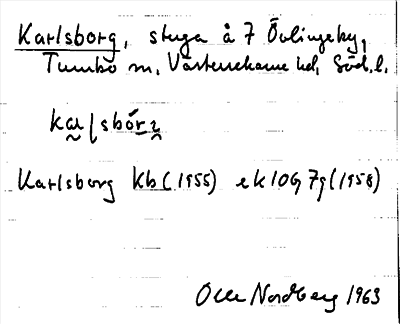 Karlsborg, stuga å 7 Övlingeby,
Tumbo sn, Västerrekarne hd, Söd. l.
Karlsborg kb (1955) ek 10G 7g (1958)
Olle Nordberg 1963